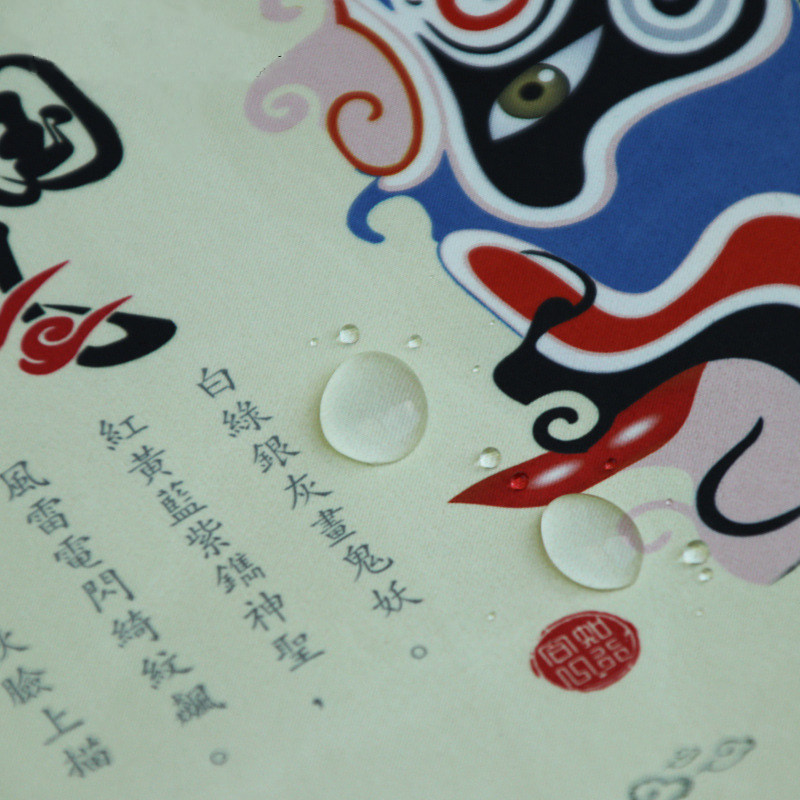 臉上描
風雷電閃綺紋。
紅黃藍紫鐫神聖，
白綠銀灰畫鬼妖。